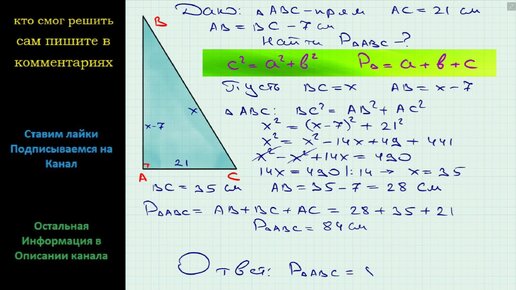 кто смог решить
сам пишите в
комментариях
Ставим лайки
Подписываемся на
Канал
Остальная
Информация в
Описании канала
B
x
x-7
21
A
C
Дано: △ABC-прям AC = 21 см
AB = BC - 7 см
Найти P△ABC - ?
c² = a² + b² P△ = a + b + c
Пусть BC = x AB = x - 7
△ABC: BC² = AB² + AC²
x² = (x-7)² + 21²
x² = x² - 14x + 49 + 441
x² - x² + 14x = 490
14x = 490 | : 14 → x = 35
BC = 35 см AB = 35 - 7 = 28 см
P△ABC = AB + BC + AC = 28 + 35 + 21
P△ABC = 84 см
Ответ: P△ABC =